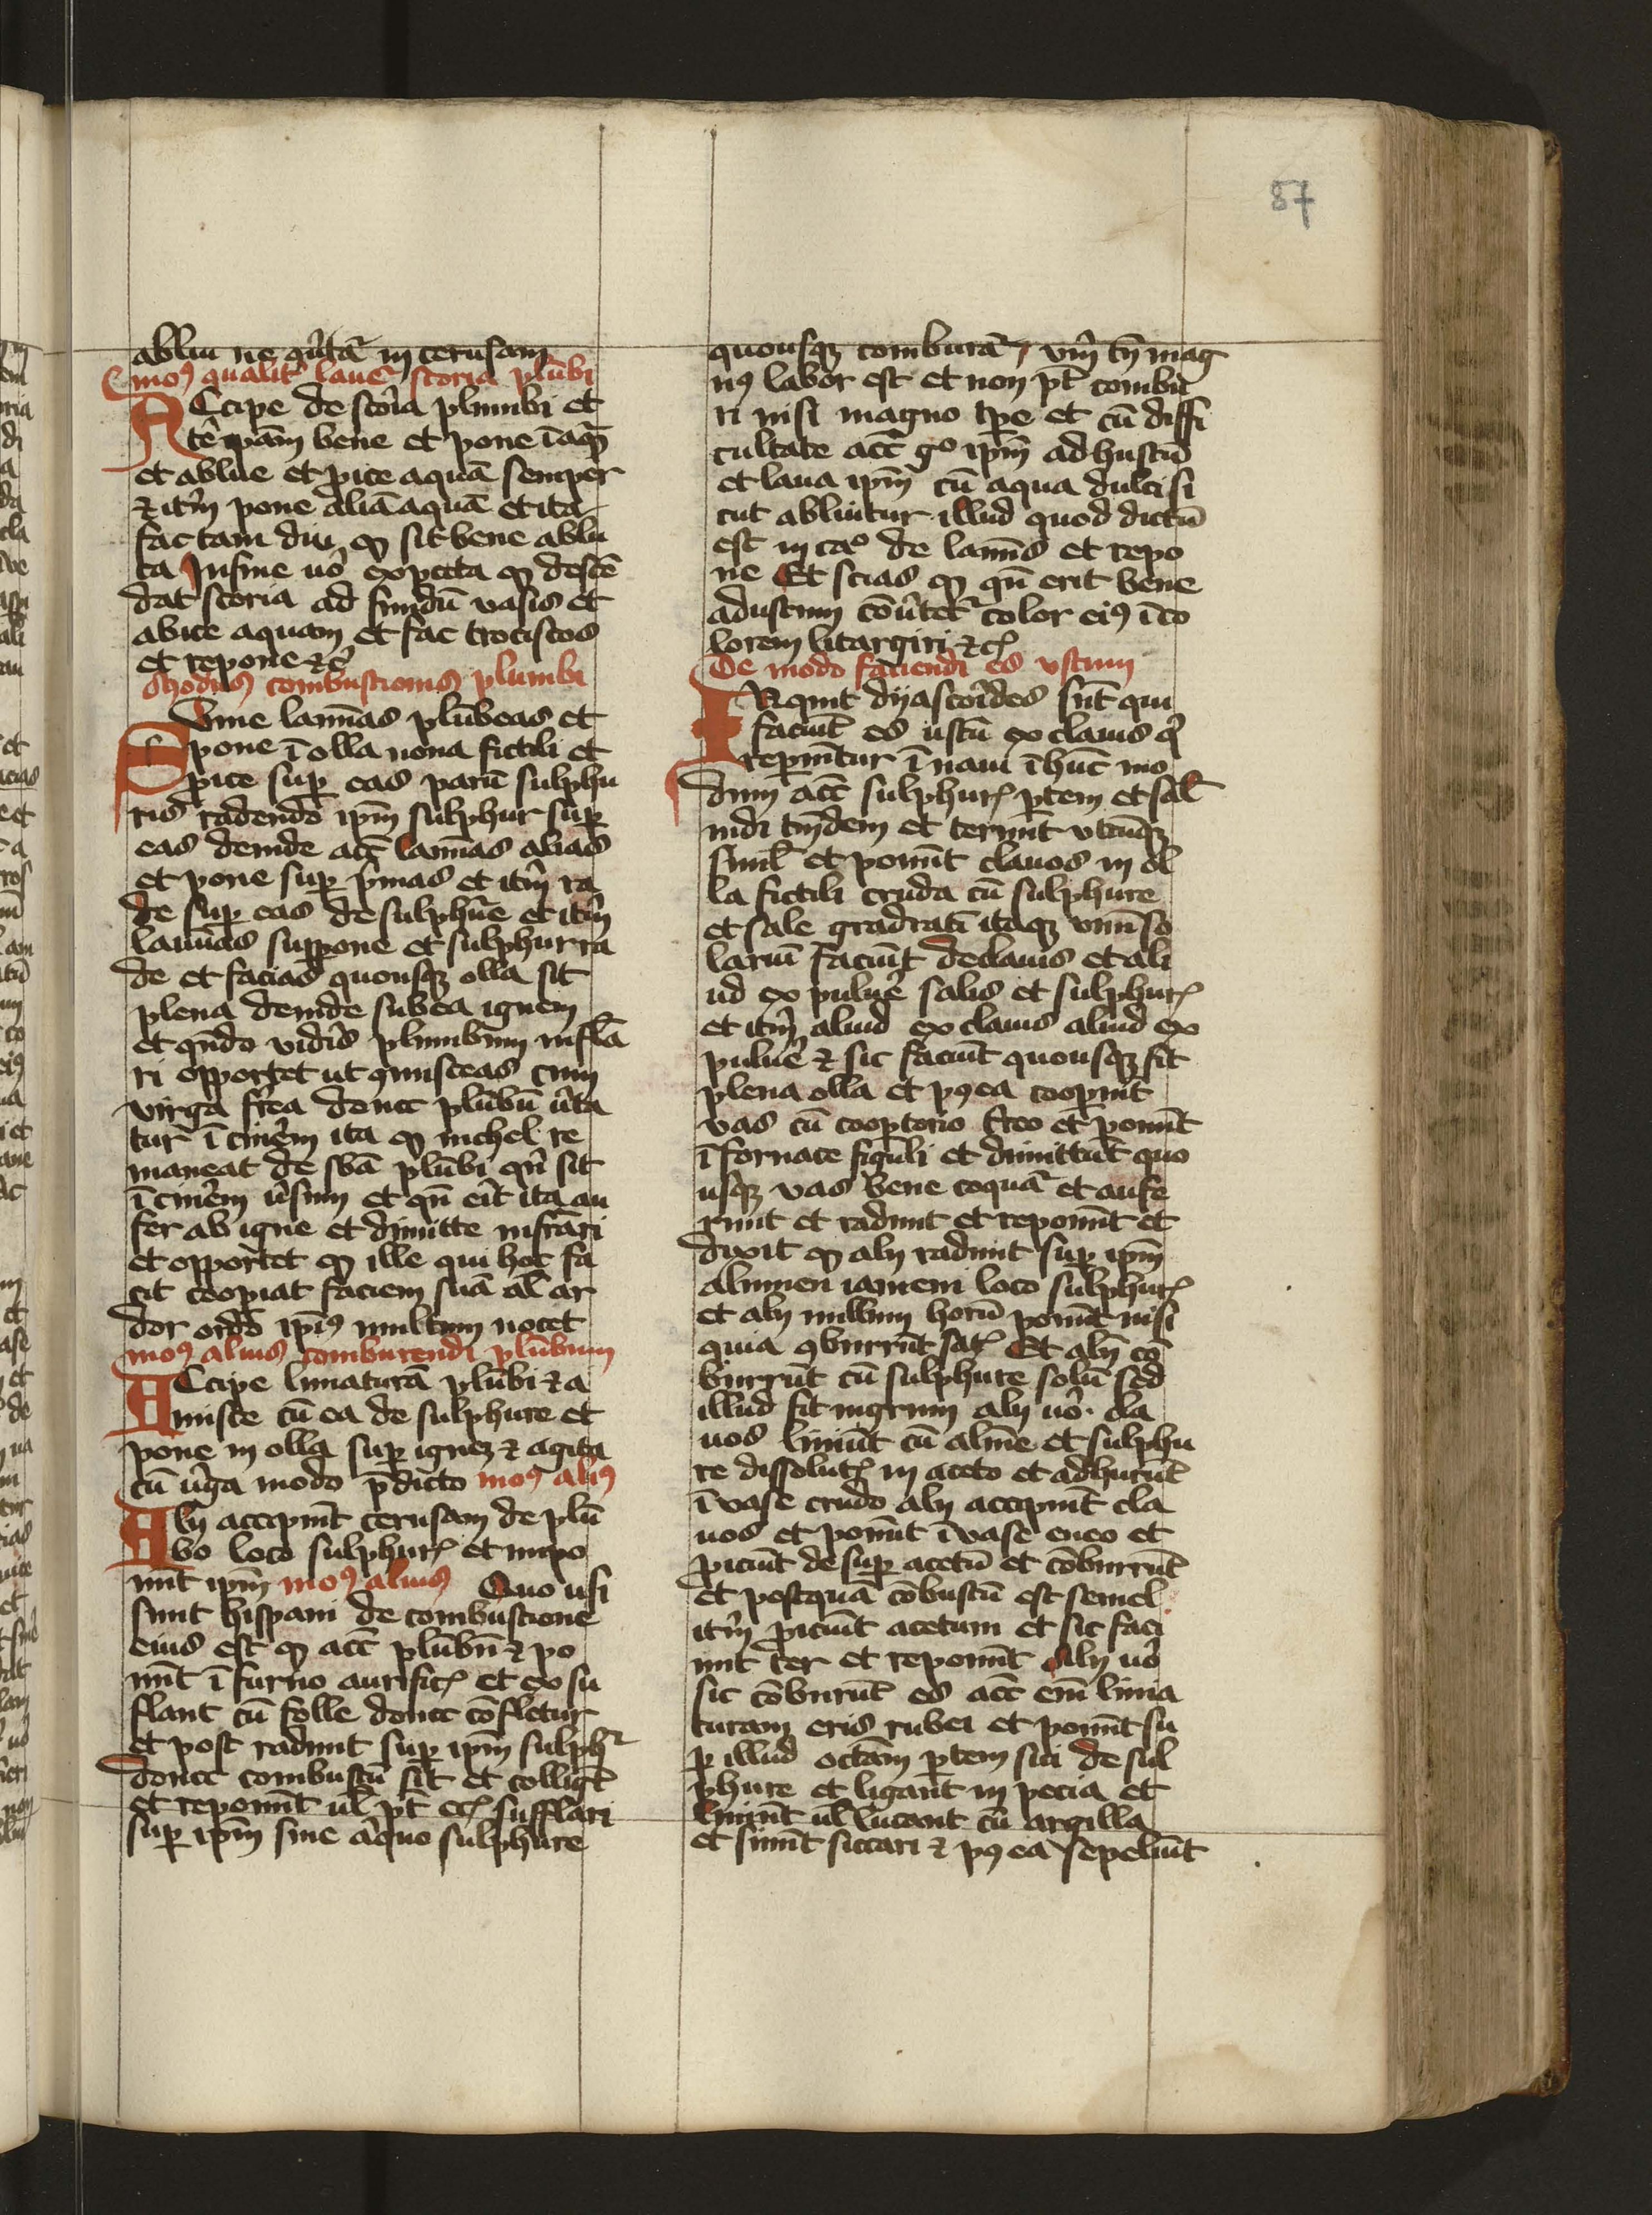 87
abliu ne q͛ūtat̄ in cerusam
moꝯ qualit̄ lauet̄ scoria plūbi
ACcipe de scōia plumbi et
tēipam bene et pone ī aq̄
et ablue et ꝓice aquā semper
⁊ itm̄ pone aliā aquā et ita
fac tam diu ꝙ sit bene ablu
ta In fine uō expecta ꝙ descē
dat scoria ad fundū vasis et
abice aquam et fac trociscos
et repone ⁊c̄
Modus combustionis plumbi
SVme lam̄as plūbeas et
pone ī olla noua fictili et
ꝓice suꝑ eas parū sulphu
ris radendo ipm̄ sulphur suꝑ
eas deinde acc̄ lam̄as alias
et pone suꝑ p̄mas et itm̄ ra
de suꝑ eas de sulphūe et itm̄
lamīas suꝑpone et sulphur ra
de et facias quousqꝫ olla sit
plena deinde subea ignem
et qn̄do vidēis plumbum inflā
ri opportet ut ꝯmisceas cum
virga fr̄ea donec plūbū ūta
tur ī cinēm ita ꝙ nichel re
maneat de sb̄a plūbi qn̄ sit
ī cinēm ūsum et qn̄ eīt ita au
fer ab igne et dimitte infrāri
et opportet ꝙ ille qui hoc fa
cit cooꝑiat faciem suā al̄ ar
dor odo ipīꝯ multum nocet
moꝯ alius comburendi plūbum
ACcipe limaturā plūbi ⁊ a
misce cū ea de sulphure et
pone in olla suꝑ ignez ⁊ agita
cū ūga modo p̄dicto moꝯ aliꝯ
ALij accipiūt cerusam de plū
bo loco sulphur̄ et inpo
nūt ipm̄ moꝯ alius Quo usi
sunt hispani de combustione
eius est ꝙ acc̄ plūbū ⁊ po
nūt ī furno aurific̄ et exsu
flant cū folle donec cōfletur
et post radunt suꝑ ipm̄ sulph̄
donec combustū sit et colligt̄
et reponūt ul̄ pt̄ ecc̄ sufflari
suꝑ ipm̄ sine aliquo sulphure
quousqꝫ comburat̄ vm̄ tn̄ mag
nꝯ labor est et non pt̄ combu
ri nisi magno tp̄e et cū diffi
cultate acc̄ gͦ ipm̄ adhustū
et laua ipm̄ cū aqua dulci si
cut abluitur illud quod dictū
est in caͦ de lam̄is et repo
ne Et scias ꝙ qn̄ erit bene
adustum cōūtet̄ color eiꝯ ī co
lorem litargiri ⁊c̄
De modo faciendi es vstum
INquit dyascoīdes sūt qui
faciūt es ustū ex clauis q̄
reperiūtur ī naui ī hūc mo
dum acc̄ sulphur̄ ꝑtem et sal̄
indi tm̄dem et terunt vtrūqꝫ
simul̄ et ponūt clauos in ol
la fictili cruda cū sulphure
et sale gradratī itaqꝫ vnū so
lariū faciūt de clauis et ali
ud ex puluē salis et sulphur̄
et itm̄ aliud ex clauis aliud ex
puluē ⁊ sic faciūt quousqꝫ sit
plena olla et pꝯea cooꝑiūt
vas cū cooptorio tr̄eo et ponūt
ī fornace figuli et dimittūt quo
usqꝫ vas bene coquat̄ et aufe
runt et radunt et reponūt et
dixit ꝙ alij radunt suꝑ ipm̄
alumen iameni loco sulphur̄
et alij nullum horū ponūt nisi
quia ꝯburrūt sat̄ Et alij cō
burrūt cū sulphure solū sed
illud fit nigrum alij uō cla
uos liniūt cū alum̄e et sulphu
re dissolut̄ in aceto et adhurūt
ī vase crudo alij accipiūt cla
uos et ponūt ī vase eneo et
ꝓiciūt desuꝑ acetū et cōburrūt
et postquā cōbustū est semel
itm̄ ꝓiciūt acetum et sic faci
unt ter et reponūt Alij uō
sic cōburūt es acc̄ em̄ lima
turam eris rubei et ponūt su
ꝑ illud octām ꝑtem sui de sul
phure et ligant in pecia et
liniūt ul̄ lutant cū argilla
et sinūt siccari ⁊ pꝯea sepeliūt